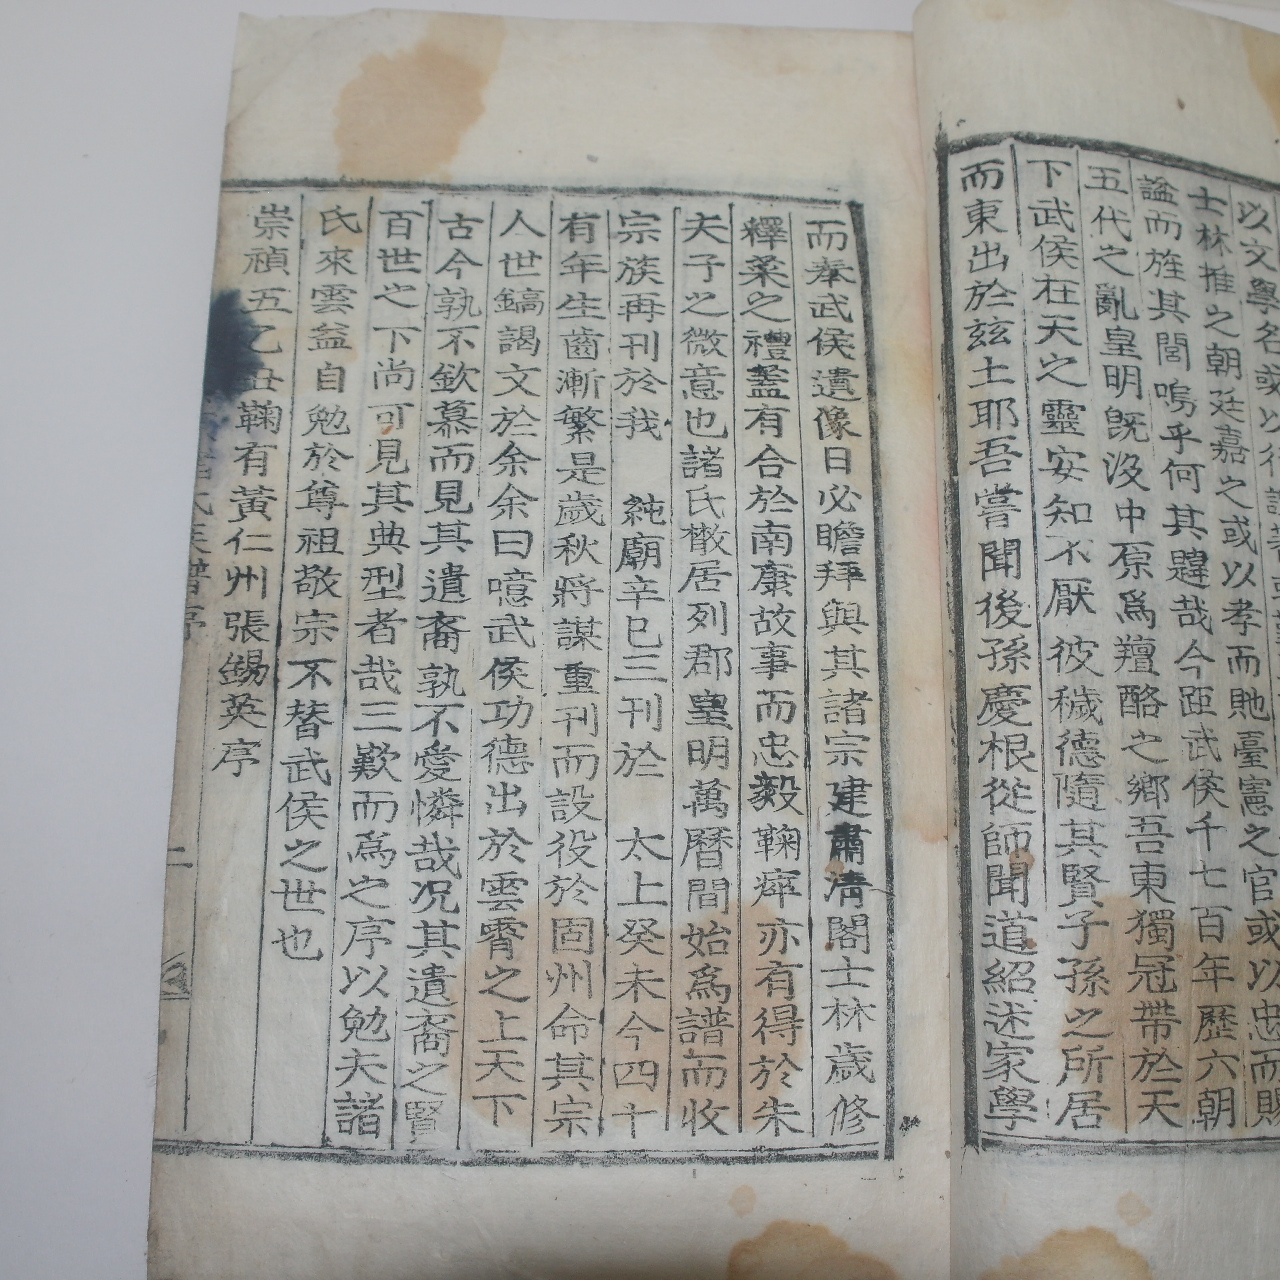 以文學名或以行
士林推之朝廷嘉之或以孝而貤臺憲之官或以忠而貤
謚而旌其閭嗚乎何其韙哉今距武侯千七百年歷六朝
五代之亂皇明旣沒中原爲羶酪之鄉吾東獨冠帶於天
下武侯在天之靈安知不厭彼穢德隨其賢子孫之所居
而東出於玆土耶吾嘗聞後孫慶根從師聞道紹述家學
而奉武侯遺像日必瞻拜與其諸宗建肅淸閣士林歲修
釋菜之禮蓋有合於南康故事而忠毅鞠瘁亦有得於朱
夫子之微意也諸氏散居列郡皇明萬曆間始爲譜而收
宗族再刊於我 純廟辛巳三刊於 太上癸未今四十
有年生齒漸繁是歲秋將謀重刊而設役於固州命其宗
人世鎬謁文於余余曰噫武侯功德出於雲霄之上天下
古今孰不欽慕而見其遺裔孰不愛憐哉况其遺裔之賢
百世之下尚可見其典型者哉三歎而爲之序以勉夫諸
氏來雲益自勉於尊祖敬宗不替武侯之世也
崇禎五乙丑鞠有黃仁州張錫英序
氏族譜序
二